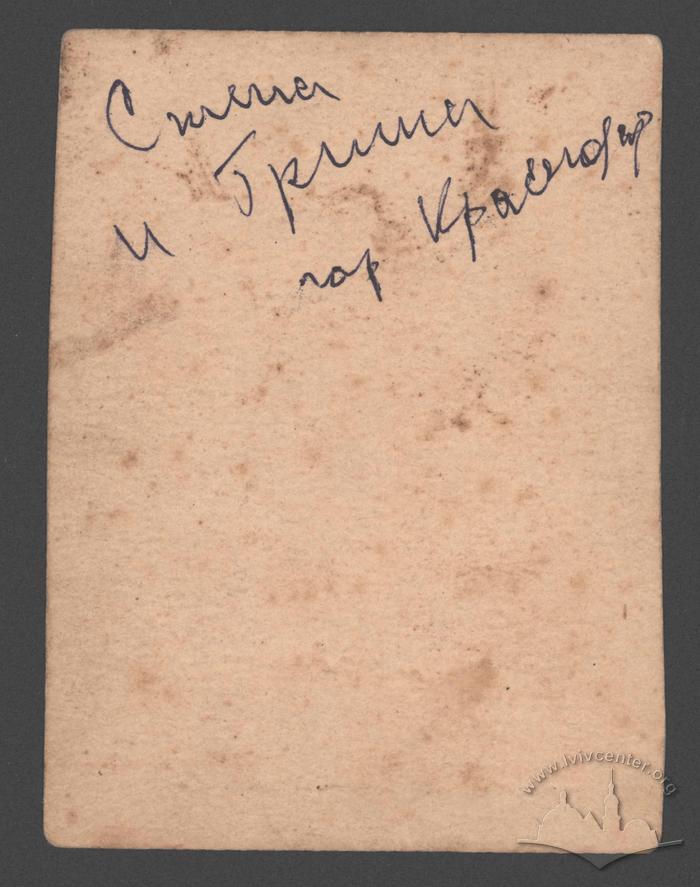 Стёпа
и Гриша
гор Краснодар
www.lvivcenter.org